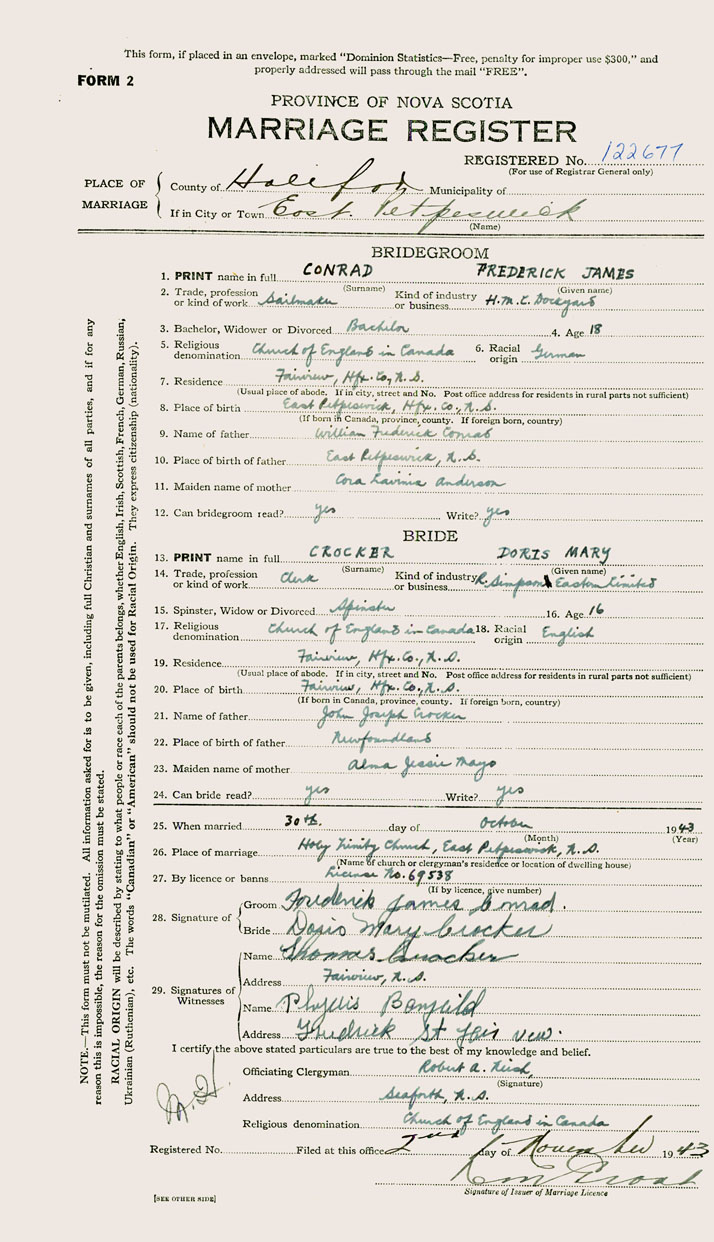 This form, if placed in an envelope, marked "Dominion Statistics—Free, penalty for improper use $300," and
properly addressed will pass through the mail "FREE".
FORM 2
PROVINCE OF NOVA SCOTIA
MARRIAGE REGISTER
REGISTERED No. 122677
(For use of Registrar General only)
PLACE OF MARRIAGE
County of Halifax Municipality of
If in City or Town East Petpeswick
(Name)
BRIDEGROOM
1. PRINT name in full CONRAD FREDERICK JAMES
(Surname) (Given name)
2. Trade, profession or kind of work Sailmaker Kind of industry or business H.M.C. Dockyard
3. Bachelor, Widower or Divorced Bachelor 4. Age 18
5. Religious denomination Church of England in Canada 6. Racial origin German
7. Residence Fairview, Hfx. Co., N.S.
(Usual place of abode. If in city, street and No. Post office address for residents in rural parts not sufficient)
8. Place of birth East Petpeswick, Hfx. Co., N.S.
(If born in Canada, province, county. If foreign born, country)
9. Name of father William Frederick Conrad
10. Place of birth of father East Petpeswick, N.S.
11. Maiden name of mother Cora Lavinia Anderson
12. Can bridegroom read? yes Write? yes
BRIDE
13. PRINT name in full CROCKER DORIS MARY
(Surname) (Given name)
14. Trade, profession or kind of work Clerk Kind of industry or business R. Simpson Eastern Limited
15. Spinster, Widow or Divorced Spinster 16. Age 16
17. Religious denomination Church of England in Canada 18. Racial origin English
19. Residence Fairview, Hfx. Co., N.S.
(Usual place of abode. If in city, street and No. Post office address for residents in rural parts not sufficient)
20. Place of birth Fairview, Hfx. Co., N.S.
(If born in Canada, province, county. If foreign born, country)
21. Name of father John Joseph Crocker
22. Place of birth of father Newfoundland
23. Maiden name of mother Alma Jessie Mayo
24. Can bride read? yes Write? yes
25. When married 30th. day of October 1943
(Month) (Year)
26. Place of marriage Holy Trinity Church, East Petpeswick, N.S.
(Name of church or clergyman's residence or location of dwelling house)
27. By licence or banns License No. 69538
(If by licence, give number)
28. Signature of
Groom Frederick James Conrad.
Bride Doris Mary Crocker
29. Signatures of Witnesses
Name Thomas Crocker
Address Fairview, N.S.
Name Phyllis
Address Fredrick St Fair view.
I certify the above stated particulars are true to the best of my knowledge and belief.
Officiating Clergyman Robert A.
(Signature)
Address Seaforth, N.S.
Religious denomination Church of England in Canada
Registered No. Filed at this office 2nd day of November 1943
Signature of Issuer of Marriage Licence
[SEE OTHER SIDE]
NOTE.—This form must not be mutilated. All information asked for is to be given, including full Christian and surnames of all parties, and if for any
reason this is impossible, the reason for the omission must be stated.
RACIAL ORIGIN will be described by stating to what people or race each of the parents belongs, whether English, Irish, Scottish, French, German, Russian,
Ukrainian (Ruthenian), etc. The words "Canadian" or "American" should not be used for Racial Origin. They express citizenship (nationality).